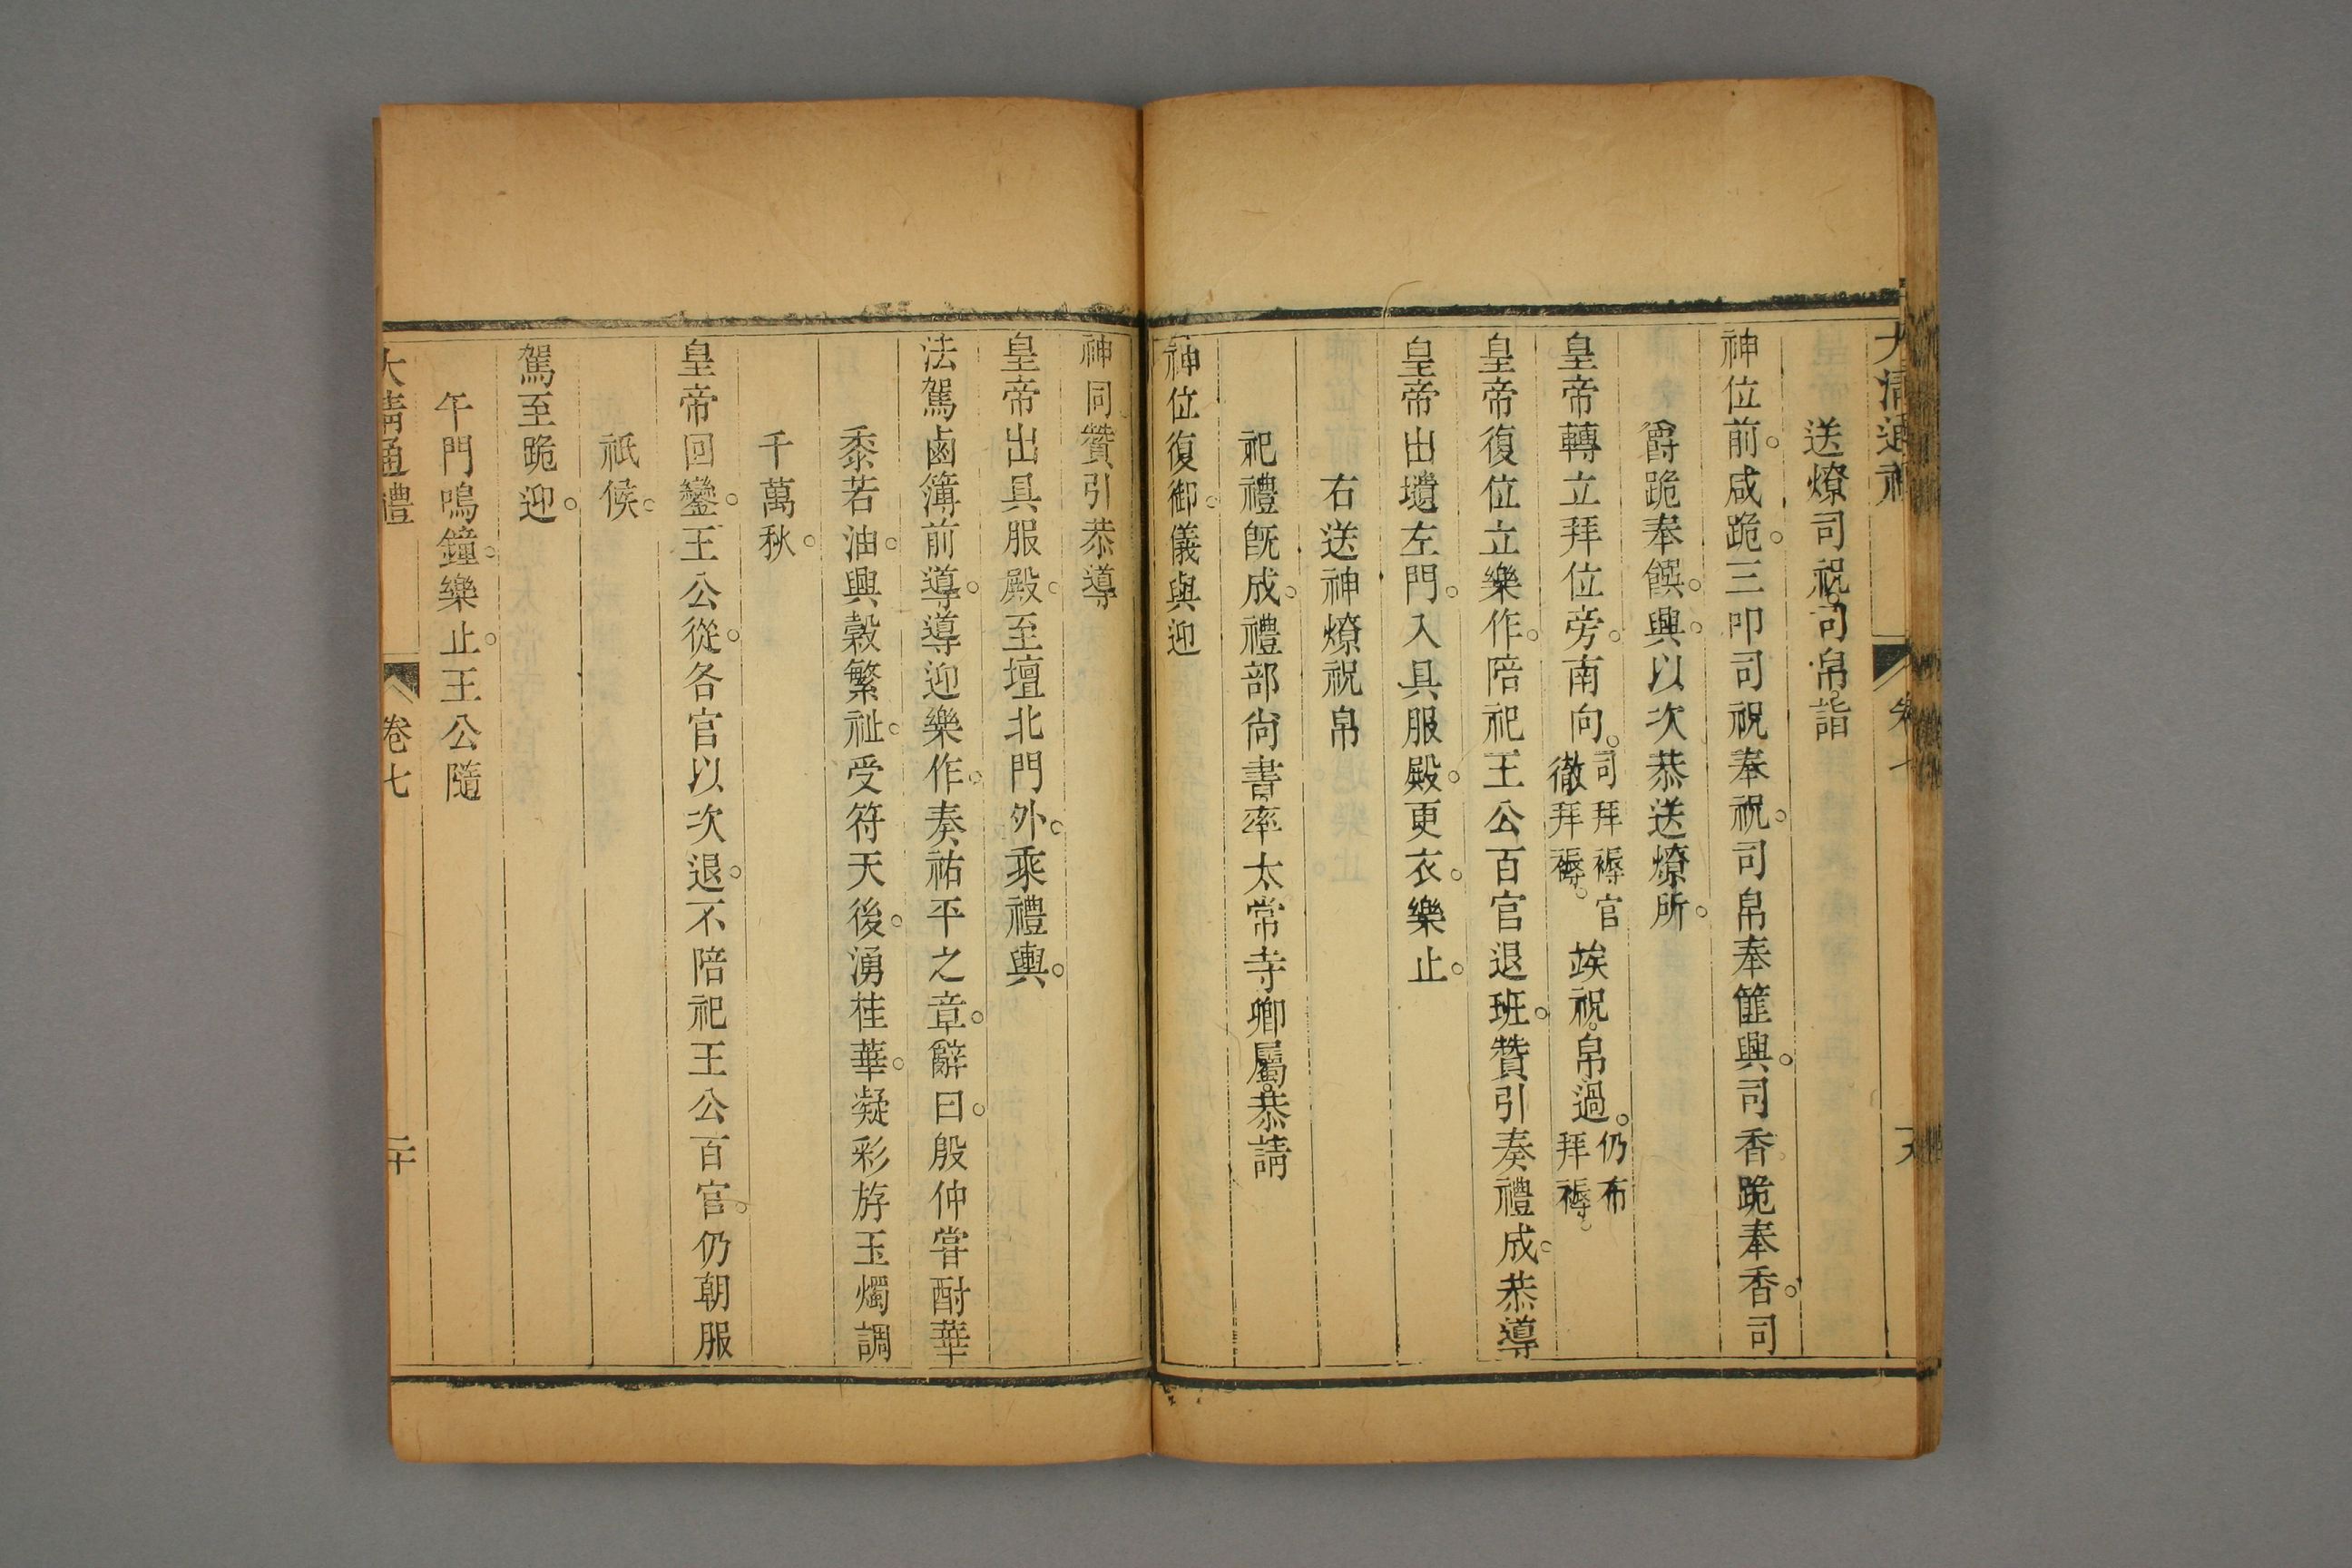 大清通禮
卷七
送燎司祝司帛詣
神位前。咸跪。三叩司祝奉祝。司帛奉篚興。司香跪奉香。司
爵跪奉饌。興。以次恭送燎所。
皇帝轉立拜位旁。南向。司拜褥官徹拜褥。竢祝帛過。仍布拜褥。
皇帝復位立樂作。陪祀王公百官退班。贊引奏禮成。恭導
皇帝出壝左門。入具服殿。更衣。樂止。
右送神燎祝帛
祀禮旣成。禮部尙書率太常寺卿屬恭請
神位復御。儀與迎
神同贊引恭導
皇帝出具服殿。至壇北門外。乘禮輿。
法駕鹵簿前導。導迎樂作。奏祐平之章。辭曰。殷仲嘗酎華
黍若油。興穀繁祉。受符天後。湧桂華。凝彩斿玉燭調
千萬秋。
皇帝回鑾。王公從。各官以次退。不陪祀王公百官。仍朝服
祇候。
駕至跪迎。
午門鳴鐘。樂止。王公隨
大清通禮
卷七
二十